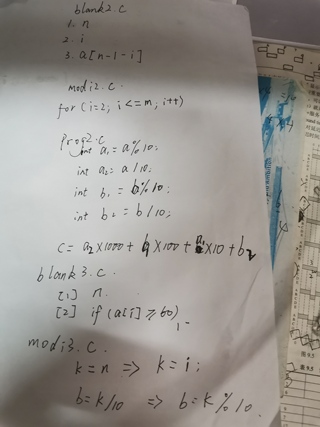 blank2.c
1. n
2. i
3. a[n-1-i]
modi2.c.
for (i=2; i<=m; i++)
prog2.c
int a₁=a%10;
int a₂=a/10;
int b₁=b%10;
int b₂=b/10;
c=a₂×1000+b₁×100+a₁×10+b₂
blank3.c.
[1] n.
[2] if (a[i]≥60)
modi3.c.
k=n => k=i;
b=k/10 => b=k%10.
图9.5